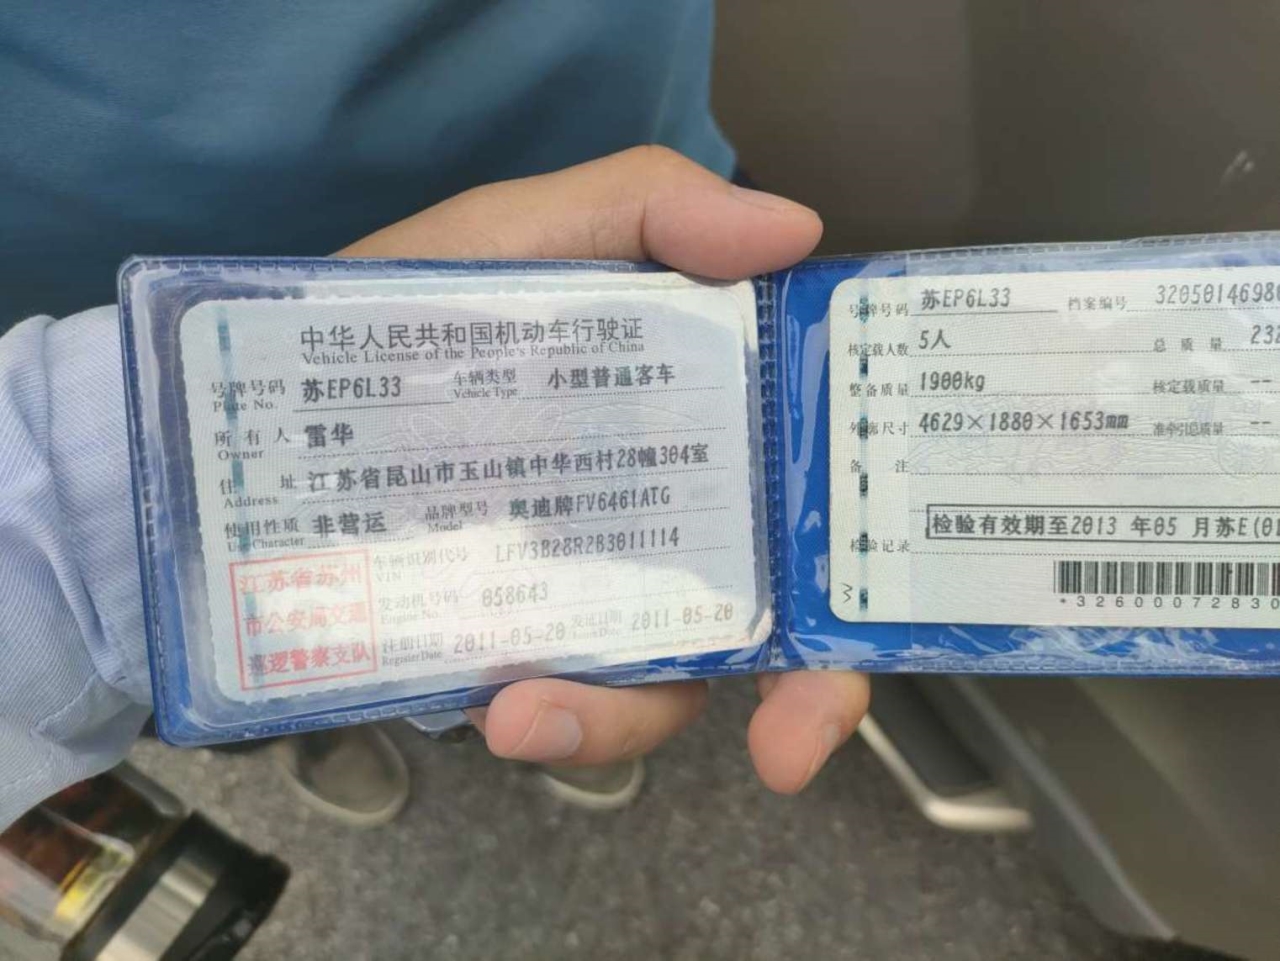 中华人民共和国机动车行驶证
Vehicle License of the People's Republic of China
号牌号码 苏EP6L33 车辆类型 小型普通客车
Plate No. Vehicle Type
所有人 雷华
Owner
住址 江苏省昆山市玉山镇中华西村28幢304室
Address
使用性质 非营运 品牌型号 奥迪牌FV6461ATG
Use Character Model
车辆识别代号 LFV3B28R2B3011114
VIN
发动机号码 058643
Engine No.
注册日期 2011-05-20 发证日期 2011-05-20
Register Date Issue Date
江苏省苏州
市公安局交通
巡逻警察支队
号牌号码 苏EP6L33 档案编号 3205014698
核定载人数 5人 总质量 232
整备质量 1900kg 核定载质量 --
外廓尺寸 4629×1880×1653mm 准牵引总质量 --
备注
检验有效期至2013 年05 月苏E(01
检验记录
*32600072830